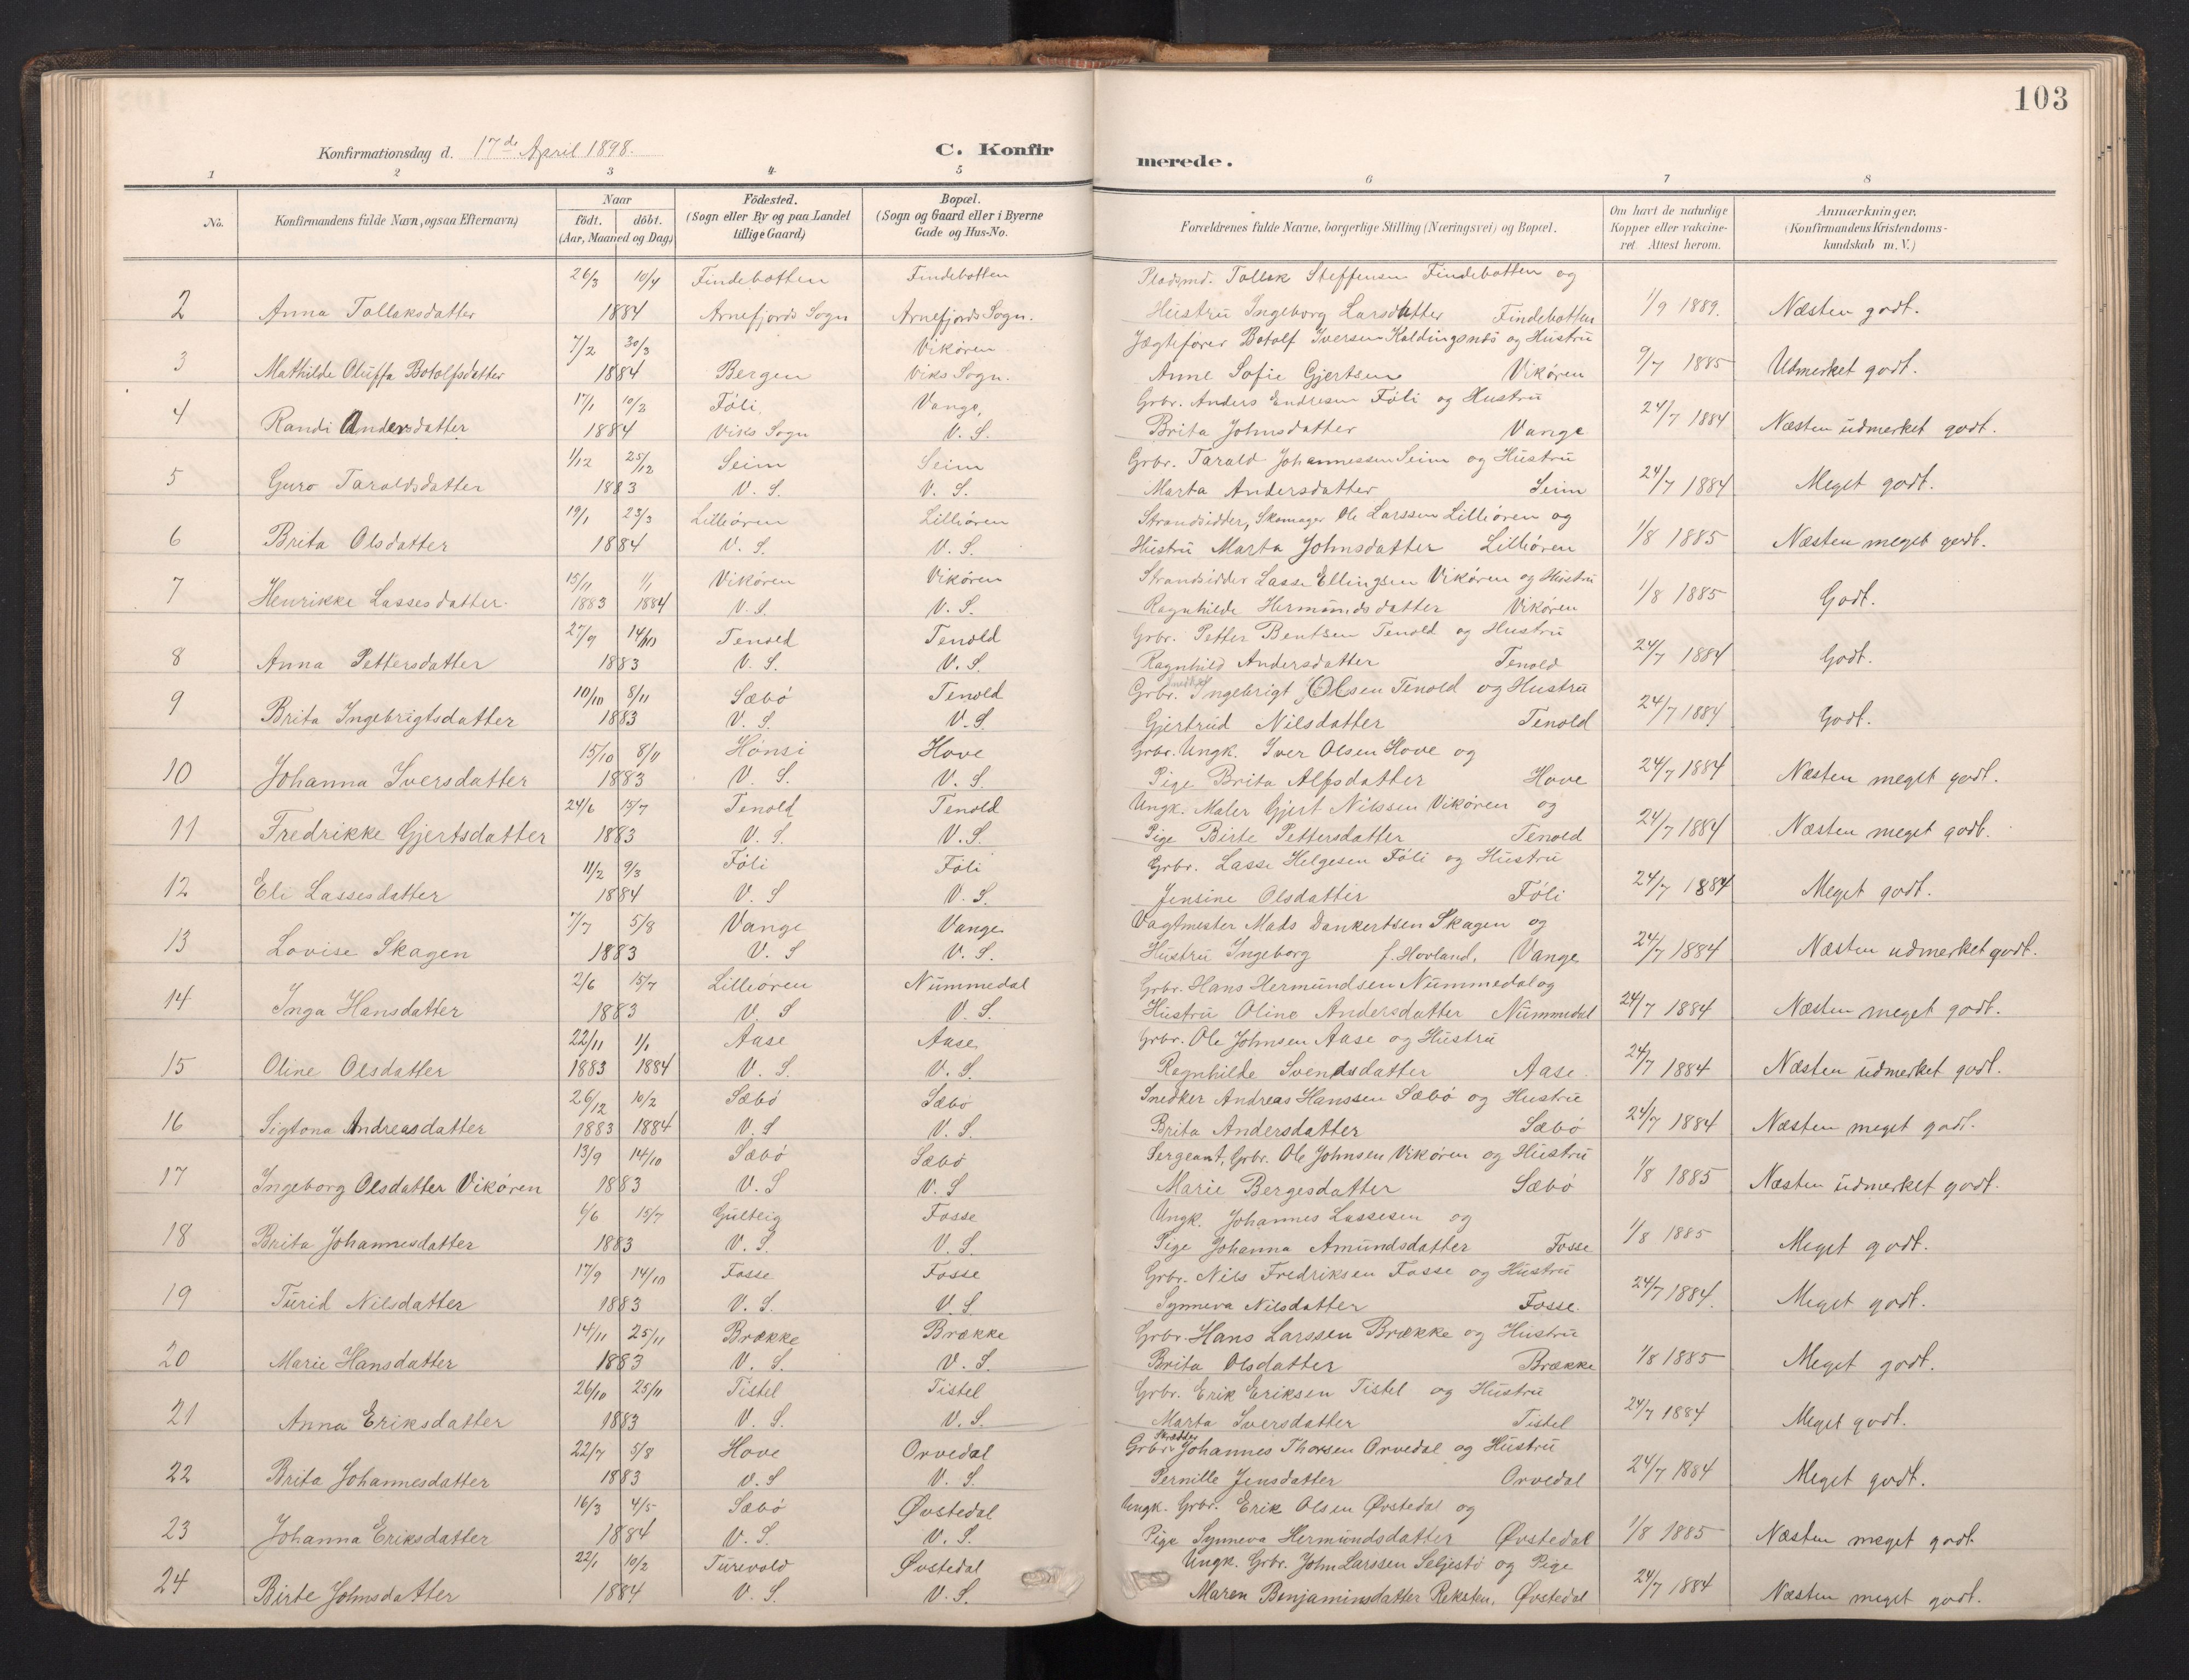 103
Konfirmationsdag d. 17de April 1898.
C. Konfir
merede.
1 2 3 4 5 6 7 8
No. Konfirmandens fulde Navn, ogsaa Efternavn) Naar født. døbt. (Aar, Maaned og Dag) Födested. (Sogn eller By og paa Landet tillige Gaard) Bopæl. (Sogn og Gaard eller i Byerne Gade og Hus-No. Forældrenes fulde Navne, borgerlige Stilling (Næringsvei) og Bopæl. Om havt de naturlige Kopper eller vaccineret. Attest herom. Anmærkninger. (Konfirmandens Kristendomskundskab m. V.)
26/3 10/4 Findebotten Findebotten Pladsmd. Tollak Steffensen Findebotten og
2 Anna Tollaksdatter 1884 Arnefjords Sogn Arnefjords Sogn. Hustru Ingeborg Larsdatter Findebotten 1/9 1889. Næsten godt.
7/2 30/3 Vikören Jægtefører Botolf Iversen Koldingsnæs og Hustru
3 Mathilde Oluffa Botolfsdatter 1884 Bergen Viks Sogn. Anne Sofie Gjertsen Vikören 9/7 1885 Udmerket godt.
17/1 10/2 Föli, Vange, Grbr. Anders Endresen Föli og Hustru
4 Randi Andersdatter 1884 Viks Sogn V. S. Brita Johnsdatter Vange 24/7 1884 Næsten udmerket godt.
1/12 25/12 Seim Seim Grbr. Tarald Johannessen Seim og Hustru
5 Guro Taraldsdatter 1883 V. S. V. S. Marta Andersdatter Seim 24/7 1884 Meget godt.
19/1 23/3 Lilleören Lilleören Strandsidder, Skomager Ole Larssen Lilleören og
6 Brita Olsdatter 1884 V. S. V. S. Hustru Marta Johnsdatter Lilleören 1/8 1885 Næsten meget godt.
15/11 1/1 Vikören Vikören Strandsidder Lasse Ellingsen Vikören og Hustru
7 Henrikke Lassesdatter. 1883 1884 V. S. V. S. Ragnhilde Hermundsdatter Vikören 1/8 1885 Godt.
27/9 14/10 Tenold Tenold Grbr. Petter Bentsen Tenold og Hustru
8 Anna Pettersdatter 1883 V. S. V. S. Ragnhild Andersdatter Tenold 24/7 1884 Godt.
10/10 8/11 Sæbö Tenold Grbr. Snedker Ingebrigt Olsen Tenold og Hustru
9 Brita Ingebrigtsdatter 1883 V. S. V. S. Gjertrud Nilsdatter Tenold 24/7 1884 Godt.
15/10 8/11 Hönsi Hove Grbr. Ungk. Iver Olsen Hove og
10 Johanna Iversdatter 1883 V. S. V. S. Pige Brita Alfsdatter Hove 24/7 1884 Næsten meget godt.
24/6 15/7 Tenold Tenold Ungk. Maler Gjert Nilssen Vikören og
11 Fredrikke Gjertsdatter 1883 V. S. V. S. Pige Birte Pettersdatter Tenold 24/7 1884 Næsten meget godt.
11/2 9/3 Föli Föli Grbr. Lasse Helgesen Föli og Hustru
12 Eli Lassesdatter 1884 V. S V. S. Jensine Olsdatter Föli 24/7 1884 Meget godt.
7/7 5/8 Vange Vange Vagtmester Mads Dankertsen Skagen og
13 Lovise Skagen 1883 V. S V. S. Hustru Ingeborg f. Hovland, Vange 24/7 1884 Næsten udmerket godt.
2/6 15/7 Lilleören Nummedal Grbr. Hans Hermundsen Nummedal og
14 Inga Hansdatter 1883 V. S V. S. Hustru Oline Andersdatter Nummedal 24/7 1884 Næsten meget godt.
22/11 1/1 Aase Aase Grbr. Ole Johnsen Aase og Hustru
15 Oline Olsdatter 1883 1884 V. S. V. S. Ragnhilde Svendsdatter Aase. 24/7 1884 Næsten udmerket godt.
26/12 10/2 Sæbö Sæbö Snedker Andreas Hanssen Sæbö og Hustru
16 Sigtona Andreasdatter 1883 1884 V. S V. S. Brita Andersdatter Sæbö 24/7 1884 Næsten meget godt.
13/9 14/10 Sæbö Sæbö Sergeant, Grbr. Ole Johnsen Vikören og Hustru
17 Ingeborg Olsdatter Vikören 1883 V. S V. S Marie Bergesdatter Sæbö 1/8 1885 Næsten udmerket godt.
6/6 15/7 Gulteig Fosse Ungk. Johannes Lassesen og
18 Brita Johannesdatter 1883 V. S. V. S. Pige Johanna Amundsdatter Fosse 1/8 1885 Meget godt.
17/9 14/10 Fosse Fosse Grbr. Nils Fredriksen Fosse og Hustru
19 Turid Nilsdatter 1883 V. S. V. S Synneva Nilsdatter Fosse. 24/7 1884. Meget godt.
14/11 25/11 Brække Brække Grbr. Hans Larssen Brække og Hustru
20 Marie Hansdatter 1883 V. S. V. S. Brita Olsdatter Brække 1/8 1885 Meget godt.
26/10 25/11 Tistel Tistel Grbr. Erik Eriksen Tistel og Hustru
21 Anna Eriksdatter 1883 V. S. V. S. Marta Iversdatter Tistel 24/7 1884 Meget godt.
22/7 5/8 Hove Orvedal Grbr. Skrædder Johannes Thorsen Orvedal og Hustru
22 Brita Johannesdatter 1883 V. S V. S. Pernille Jensdatter Orvedal 24/7 1884 Meget godt.
16/3 4/5 Sæbö Øvstedal Ungk. Grbr. Erik Olsen Øvstedal og
23 Johanna Eriksdatter 1884 V. S. V. S. Pige Synneva Hermundsdatter Øvstedal 1/8 1885 Næsten meget godt
22/1 10/2 Turvold Øvstedal Ungk. Grbr. John Larssen Seljestö og Pige
24 Birte Johnsdatter 1884 V. S. V. S. Maren Benjaminsdatter Reksten, Øvstedal 24/7 1884 Næsten meget godt.